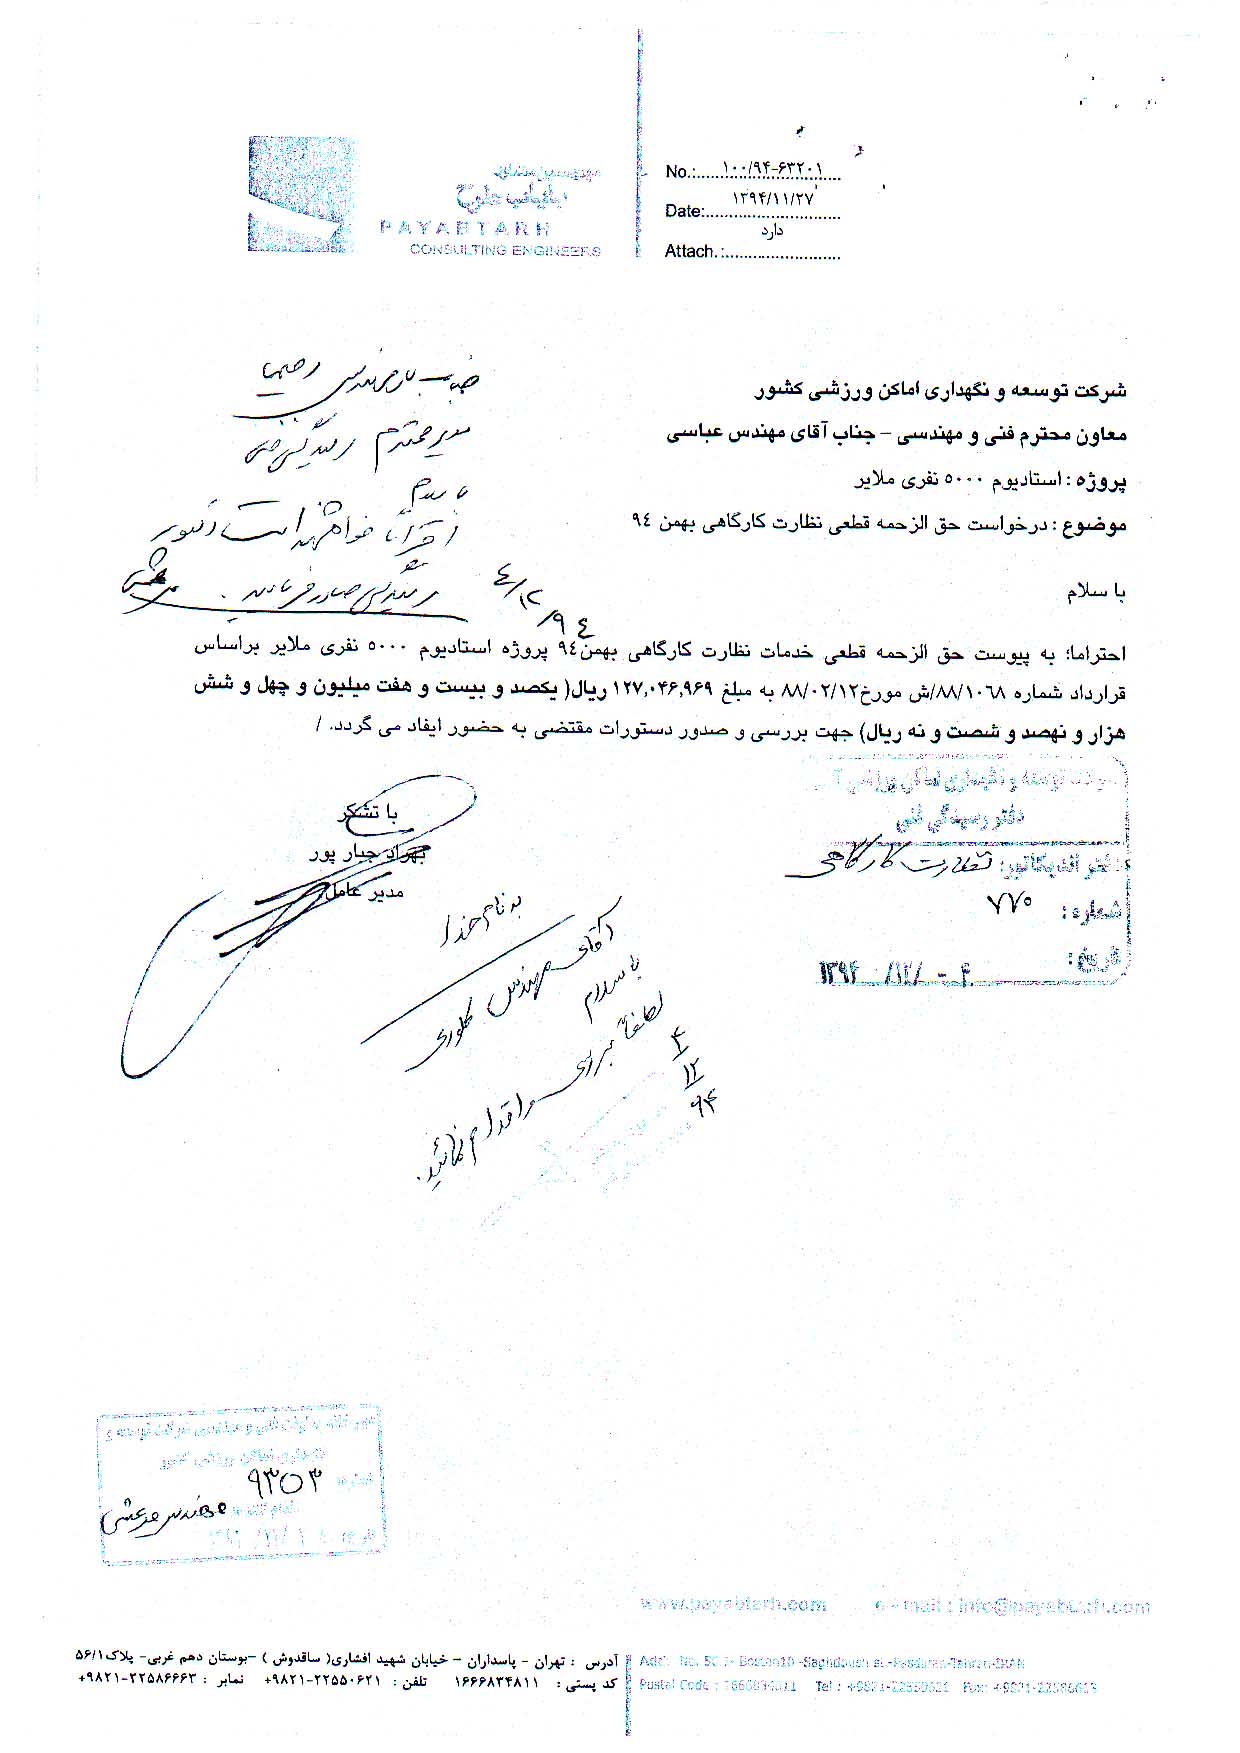 PAYABTARH
CONSULTING ENGINEERS
No.:.....۱۰۰/۹۴-۶۳۲۰۱
Date:.....۱۳۹۴/۱۱/۲۷
Attach.:.....دارد
شرکت توسعه و نگهداری اماکن ورزشی کشور
معاون محترم فنی و مهندسی – جناب آقای مهندس عباسی
پروژه : استادیوم ۵۰۰۰ نفری ملایر
موضوع : درخواست حق الزحمه قطعی نظارت کارگاهی بهمن ۹٤
با سلام
جناب مهندس
مدیر محترم رسیدگی فنی
با سلام
احتراماً خواهشمند است دستور
رسیدگی صادر فرمائید.
٤/۱۲/۹٤
احتراما؛ به پیوست حق الزحمه قطعی خدمات نظارت کارگاهی بهمن۹٤ پروژه استادیوم ۵۰۰۰ نفری ملایر براساس
قرارداد شماره ۸۸/۱۰۶۸/ش مورخ۸۸/۰۲/۱۲ به مبلغ ۱۲۷,۰۴۶,۹۶۹ ریال( یکصد و بیست و هفت میلیون و چهل و شش
هزار و نهصد و شصت و نه ریال) جهت بررسی و صدور دستورات مقتضی به حضور ایفاد می گردد. /
با تشکر
بهراد جبار پور
مدیر عامل
توسعه و نگهداری اماکن ورزشی
دفتر رسیدگی فنی
دفتر اندیکاتور: نظارت کارگاهی
شماره: ۷۷۰
تاریخ: ۴ - /۱۲/ ۱۳۹۴
به نام خدا
آقای مهندس
با سلام
لطفاً بررسی و اقدام نمائید.
۴/۱۲/۹۴
نگهداری اماکن ورزشی کشور
شماره ۹۳۵۳
مهندس مرعشی
www.payabtarh.com e-mail : info@payabtarh.com
آدرس : تهران - پاسداران - خیابان شهید افشاری( ساقدوش ) -بوستان دهم غربی- پلاک۵۶/۱
کد پستی : ۱۶۶۶۸۳۴۸۱۱ تلفن : ۲۲۵۵۰۶۲۱-۹۸۲۱+ نمابر : ۲۲۵۸۶۶۶۳-۹۸۲۱+
Postal Code : 1666834811 Tel : +9821-22550621 Fax: +9821-22586663